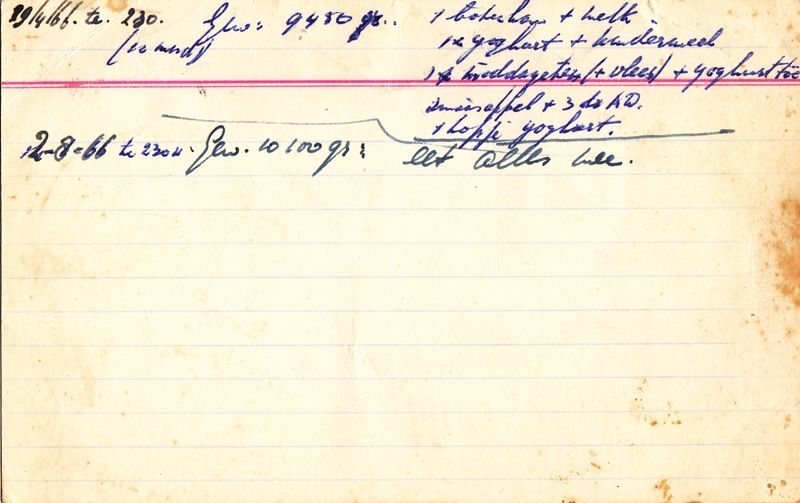 19/4/66. te. 230. Gew: 9450 gr.. 1 boterham + melk
1x yoghurt + kindermeel
1x middageten (+ vlees) + yoghurt toe
sinaasappel + 3 dr AD.
1 kopje yoghurt.
2-8-66 te 230 u. Gew. 10100 gr: eet alles mee.